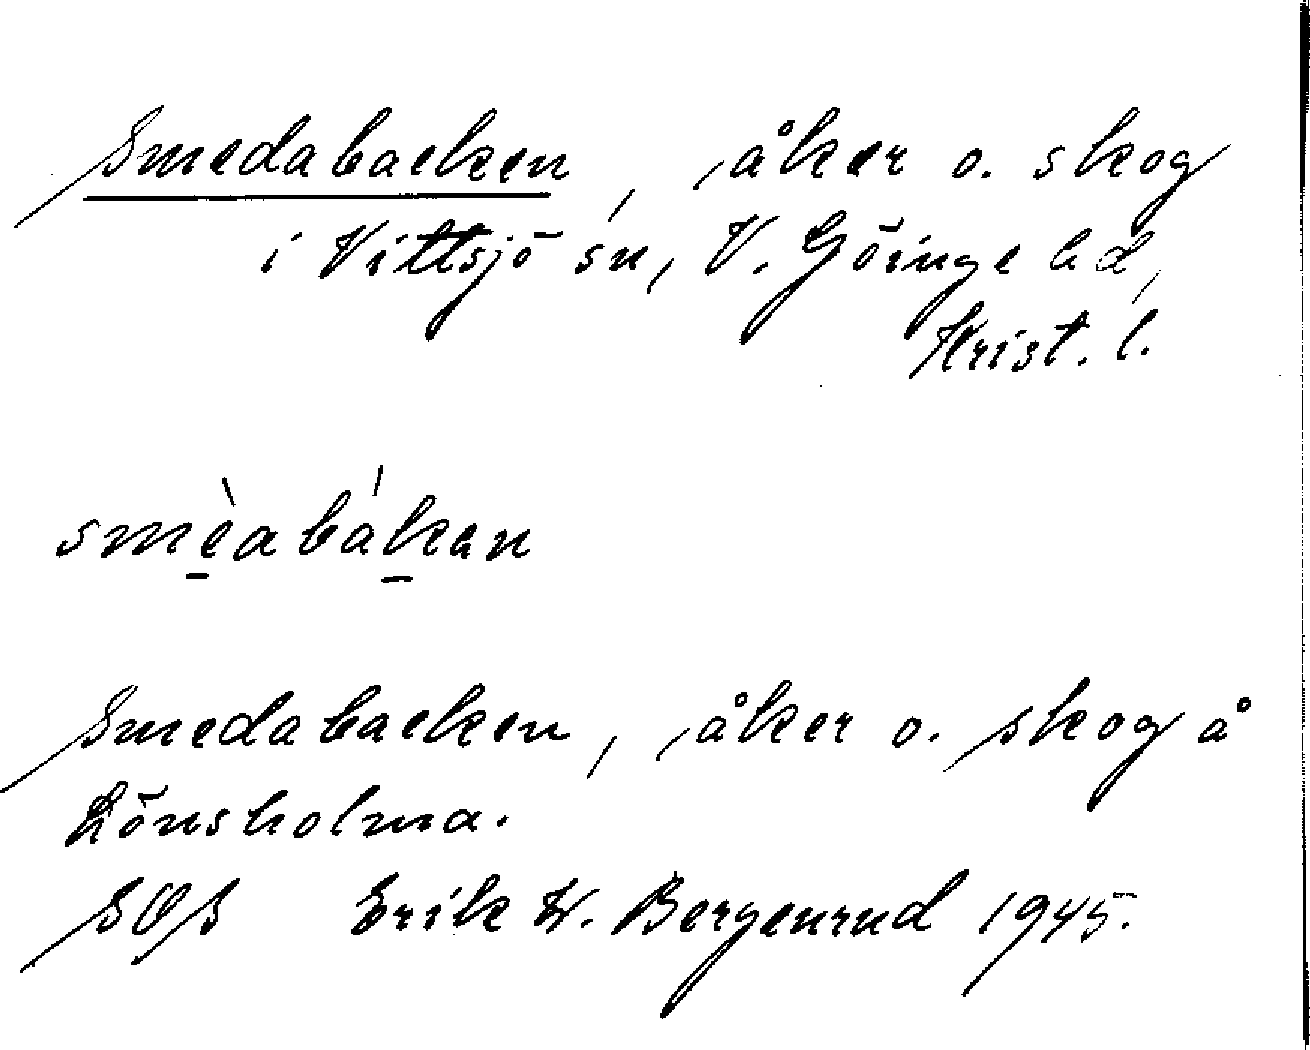 Smedabacken, åker o. skog
i Vittsjö sn, V. Göinge hd,
Krist. l.
smèabákan
Smedabacken, åker o. skog å
Lönsholma.
SOS Erik W. Bergenrud 1945.